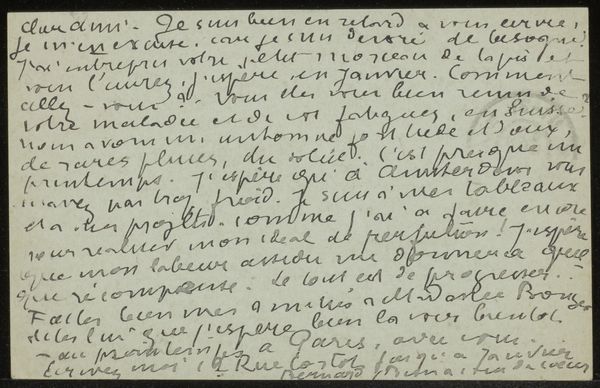 cher ami. Je suis bien en retard à vous écrire,
je m'en excuse. car je suis dévoré de besogne.
J'ai entrepris votre petit morceau de tapis et
vous l'aurez, j'espère, en Janvier. Comment
allez-vous? Vous êtes vous bien remis de
votre maladie et de vos fatigues, en Suisse?
nous avons un automne joli tiède et doux,
de rares pluies, du soleil. C'est presque un
printemps. J'espère qu'à Amsterdam vous
n'avez pas trop froid. Je suis à mes tableaux
et à mes projets. comme j'ai à faire encore
pour réaliser mon idéal de perfection! J'espère
que mon labeur assidu me donnera quel
que récompense. Le tout est de progresser...
Faites bien mes amitiés à Madame
dites lui que j'espère bien la voir bientôt
- au printemps à Paris, avec vous.
Ecrivez moi 12 Rue Cortot jusqu'à Janvier
Bernard du coeur